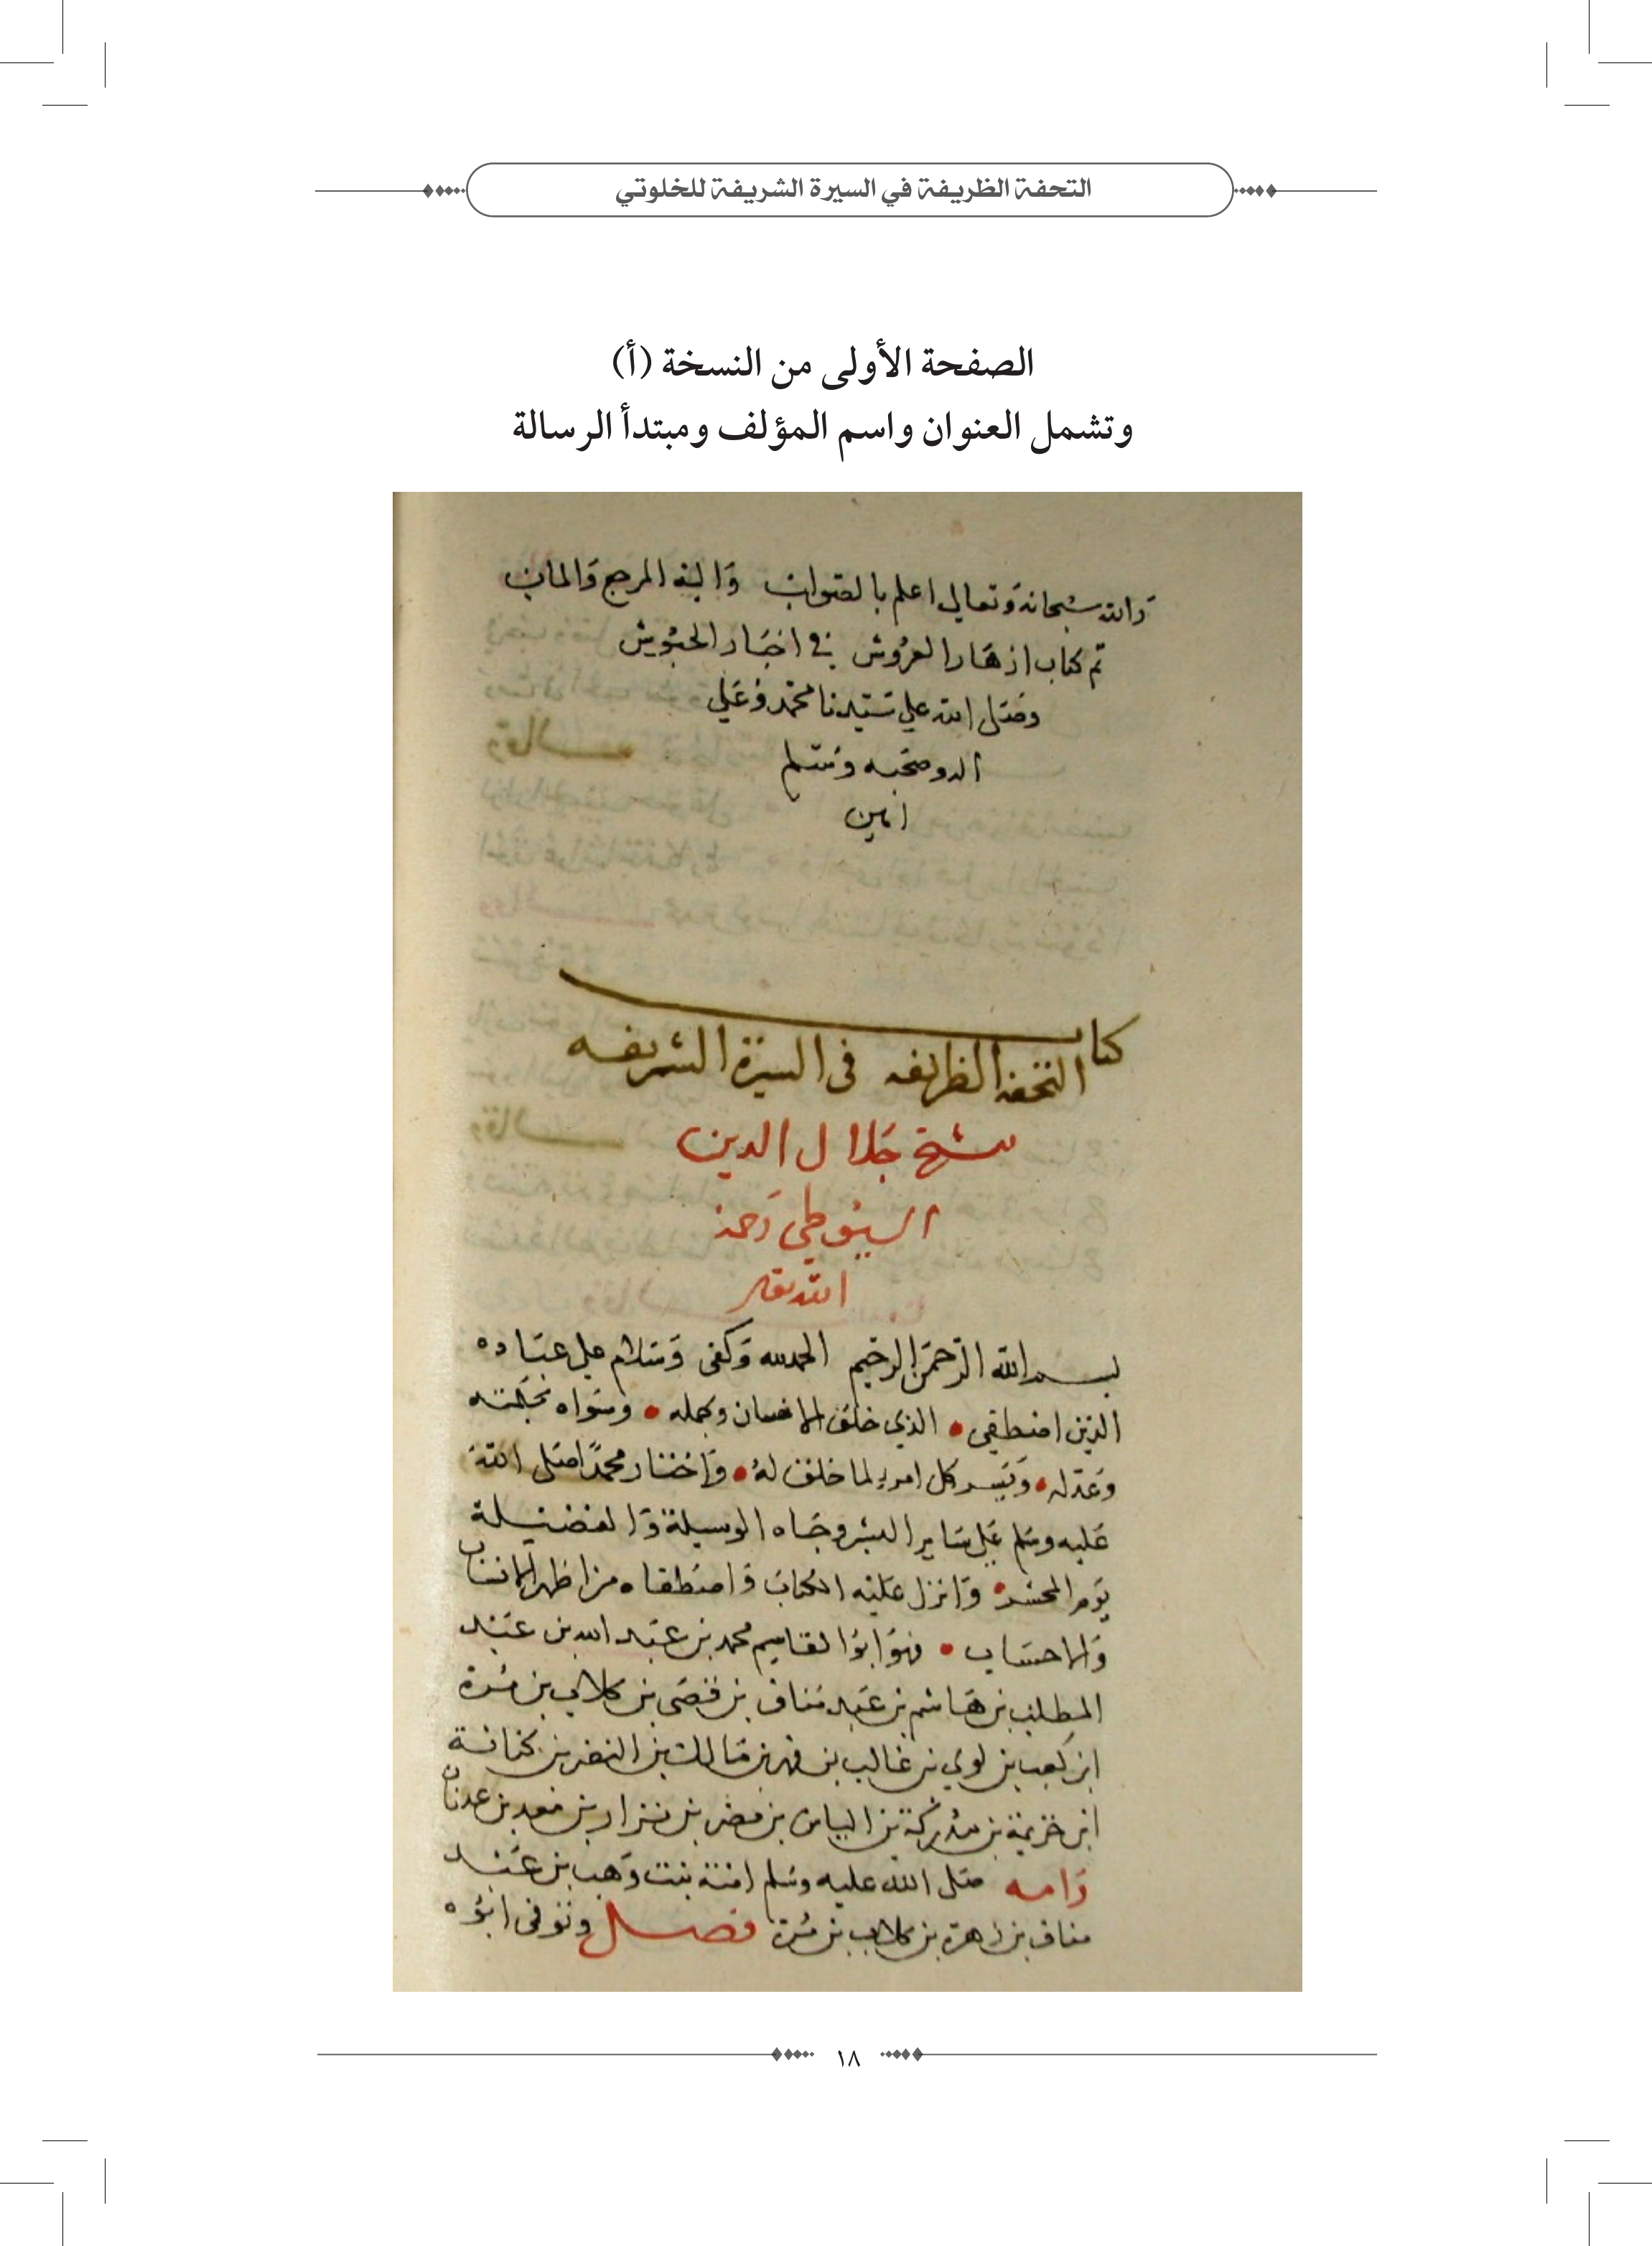 التحفة الظريفة في السيرة الشريفة للخلوتي
الصفحة الأولى من النسخة (أ)
وتشمل العنوان واسم المؤلف ومبتدأ الرسالة
والله سبحانه وتعالى اعلم بالصواب واليه المرجع والماب
تم كتاب ازهار العروش في اخبار الحبوش
وصلى الله علي سيدنا محمد وعلي
اله وصحبه وسلم
امين
كتاب
التحفه الظريفه فى السيرة الشريفه
شيخ جلال الدين
السيوطي رحمه
الله تعالى
بسم الله الرحمن الرحيم الحمد لله وكفى وسلام علي عباده
الذين اصطفي • الذي خلق الانسان وكمله • وسواه بحكمته
وعدله • ويسر كل امرء لما خلق له • واختار محمدًا صلى الله
عليه وسلم علي ساير البشر وحباه الوسيلة والفضيلة
يوم المحشر • وانزل عليه الكتاب واصطفاه من اظهر الانساب
والاحساب • فهو ابوا القاسم محمد بن عبد الله بن عبد
المطلب بن هاشم بن عبد مناف بن قصى بن كلاب بن مرة
ابن كعب بن لوي بن غالب بن فهر بن مالك بن النضر بن كنانة
ابن خزيمة بن مدركة بن الياس بن مضر بن نزار بن معد بن عدنان
وامه صلى الله عليه وسلم امنة بنت وهب بن عبد
مناف بن زهرة بن كلاب بن مرة فصل وتوفى ابوه
١٨